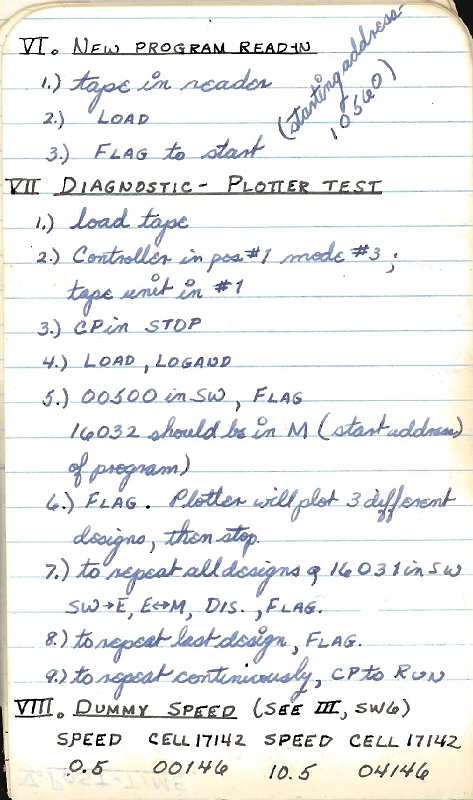 VI. NEW PROGRAM READ-IN
1.) tape in reader
2.) LOAD
3.) FLAG to start
(starting address-
10560)
VII DIAGNOSTIC- PLOTTER TEST
1.) load tape
2.) Controller in pos #1 mode #3;
tape unit in #1
3.) CP in STOP
4.) LOAD, LOGAND
5.) 00500 in SW, FLAG
16032 should be in M (start address)
of program)
6.) FLAG. Plotter will plot 3 different
designs, then stop.
7.) to repeat all designs 16031 in SW
SW→E, E↔M, DIS., FLAG.
8.) to repeat last design, FLAG.
9.) to repeat continuously, CP to RUN
VIII. DUMMY SPEED (SEE III, SW6)
SPEED CELL 17142 SPEED CELL 17142
0.5 00146 10.5 04146